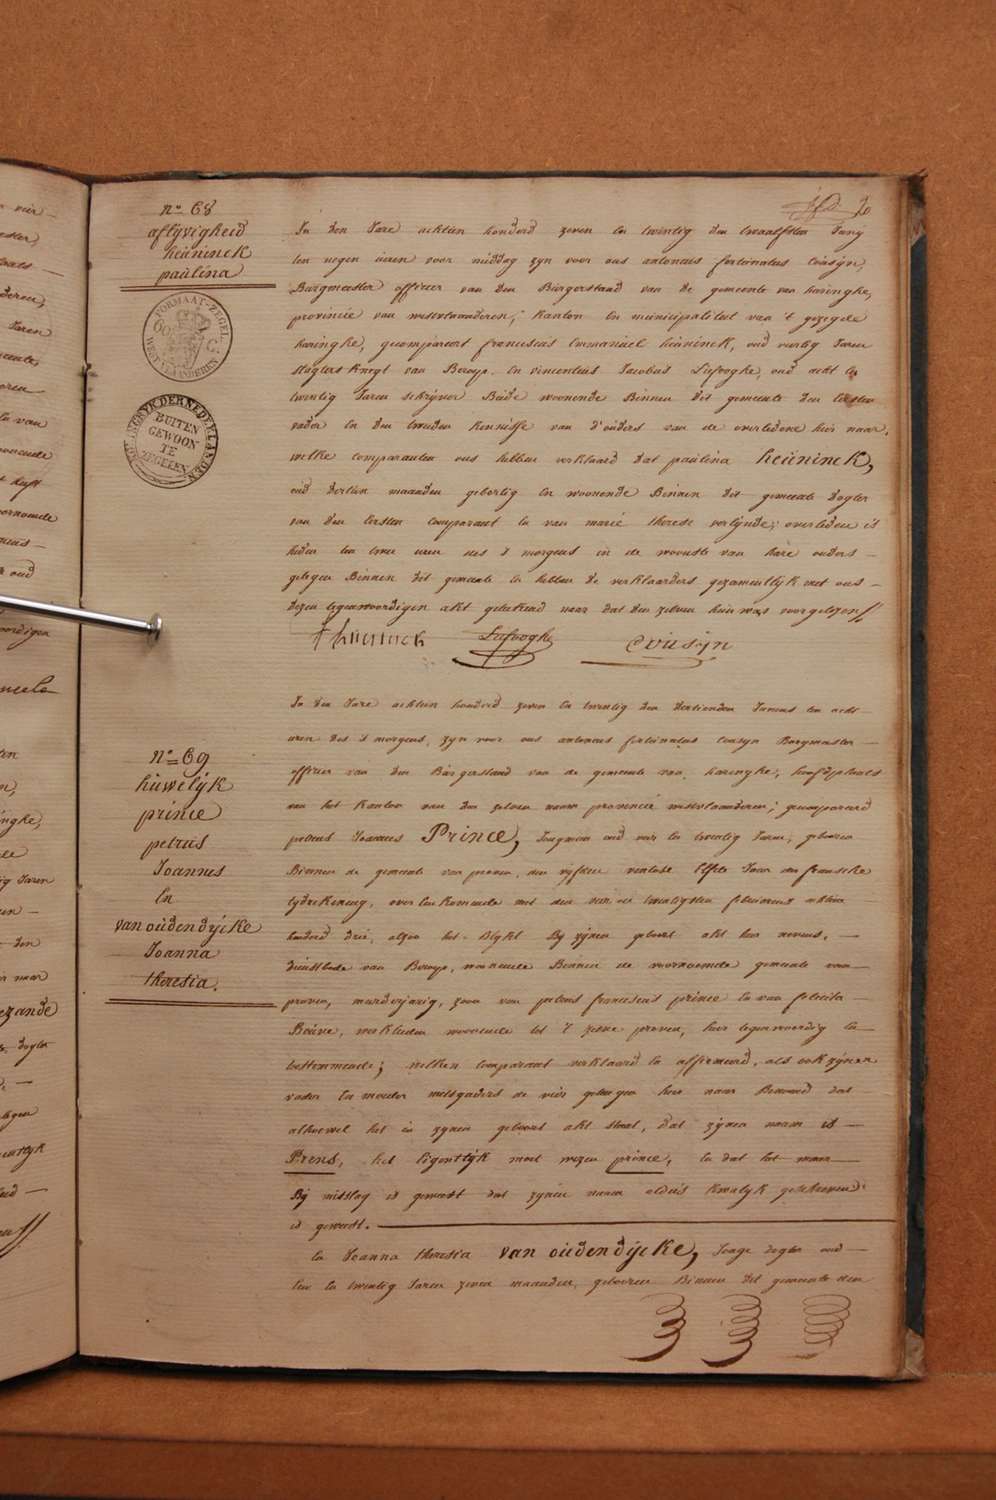 n.º 68
aflyvigheid
heüninck
paulina
FORMAAT-ZEGEL
WEST-VLAANDEREN
60
KONINGRYK DER NEDERLANDEN
BUITEN
GEWOON
TE
ZEGELEN
In den Jare achtien honderd zeven en twintig den twaalfsten Juny
ten negen uren voor middag zyn voor ons antoneus fortunatus Cousyn,
Burgmeester officier van den Burgerstand van de gemeente van haringhe,
provincie van westvlaanderen; kanton en municipaliteit van 't gezegde
haringhe, gecompareert franciscus Emmanuel heüninck, oud veertig Jaren
slagters knegt van Beroep. En vincentius Jacobus Lefooghe, oud acht en
twintig Jaren schryver Beide woonende Binnen dit gemeente den Eersten
vader en den tweeden kennisse van d'ouders van de overledene hier naar.
welke comparanten ons hebben verklaard dat paulina heüninck,
oud dertien maanden geboortig en woonende Binnen dit gemeente dogter
van den Eersten comparant en van marie therese verlynde; overleden is
heden ten twee uren des 's morgens in de wooninge van hare ouders
gelegen Binnen dit gemeente en hebben de verklaarders gezamentlyk met ons
dezen tegenwoordigen akt geteekend naar dat den zelven hun was voorgelezen //
f heüninck Lefooghe Cousyn
In den Jare achtien honderd zeven en twintig den dertienden Junius ten acht
uren des 's morgens, zyn voor ons antoneus fortunatus Cousyn Burgmeester
officier van den Burgerstand van de gemeente van haringhe, hoofdplaats
van het kanton van den zelven naam provincie westvlaanderen; gecompareerd
n.º 69
hüwelyk
prince
petrus
Joannes
En
van oüdendÿcke
Joanna
theresia.
petrus Joannes Prince, Jongman oud vier en twintig Jaren, geboren
Binnen de gemeente van proven, den vyfden ventose Elfste Jaar der fransche
tydrekening, over een komende met den vier en twintigsten february achtien
honderd drie, alzoo het Blykt By zynen geboort akt hier nevens,
dienstbode van Beroep, woonende Binnen de voornoemde gemeente van
proven, meerderjarig, zoon van petrus franciscus prince en van felicita
Beüve, werklieden woonende tot 't zelve proven, hier tegenwoordig en
toestemmende; welken comparant verklaard en affirmeerd, als ook zynen
vader en moeder mitsgaders de vier getuigen hier naar Benoemd dat
alhoewel het in zynen geboort akt staat, dat zynen naam is
Prens, het Eigentlyk moet wezen prince, en dat het maar
By mitslag is geweest dat zynen naam aldus kwalyk geschreven
is geweest.
en Joanna theresia van oüdendÿcke, Jonge dogter oud
twintig Jaren zeven maanden, geboren Binnen dit gemeente den